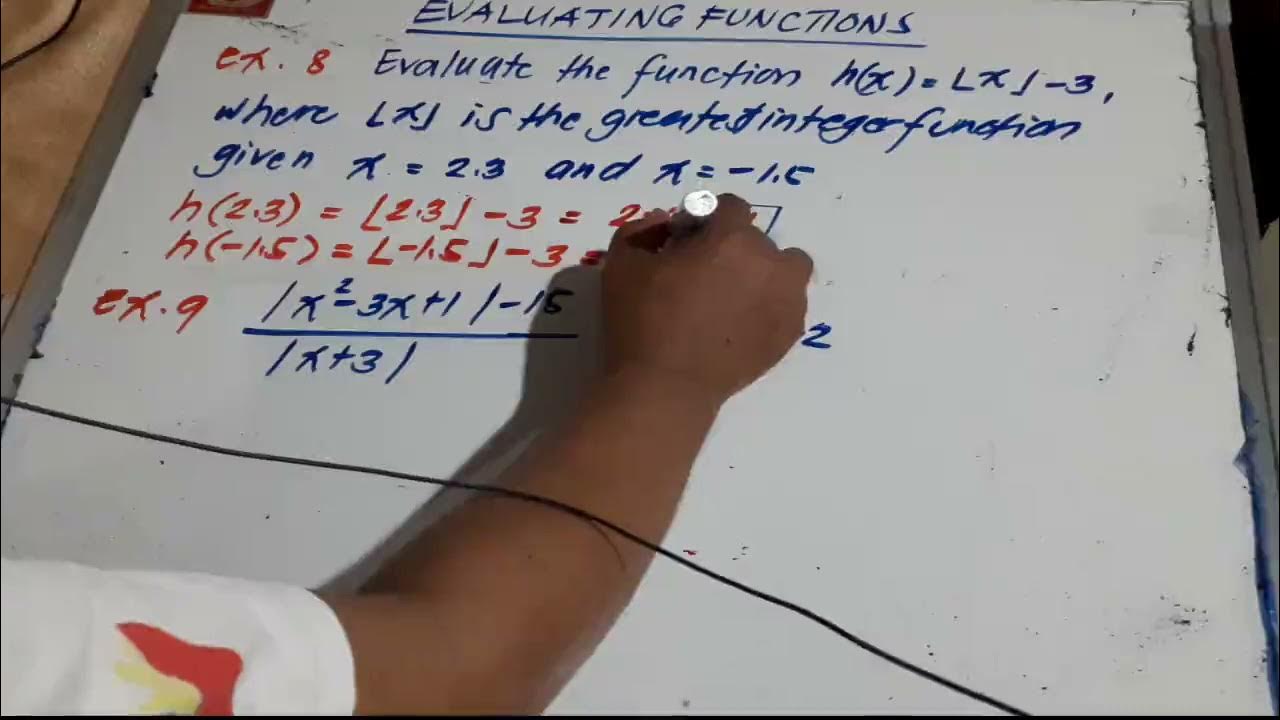 EVALUATING FUNCTIONS
ex. 8 Evaluate the function h(x) = ⌊x⌋ -3,
where ⌊x⌋ is the greatest integer function
given x = 2.3 and x = -1.5
h(2.3) = ⌊2.3⌋ -3 = 2
h(-1.5) = ⌊-1.5⌋ -3 =
ex. 9 |x²-3x+1|-15
|x+3|
2